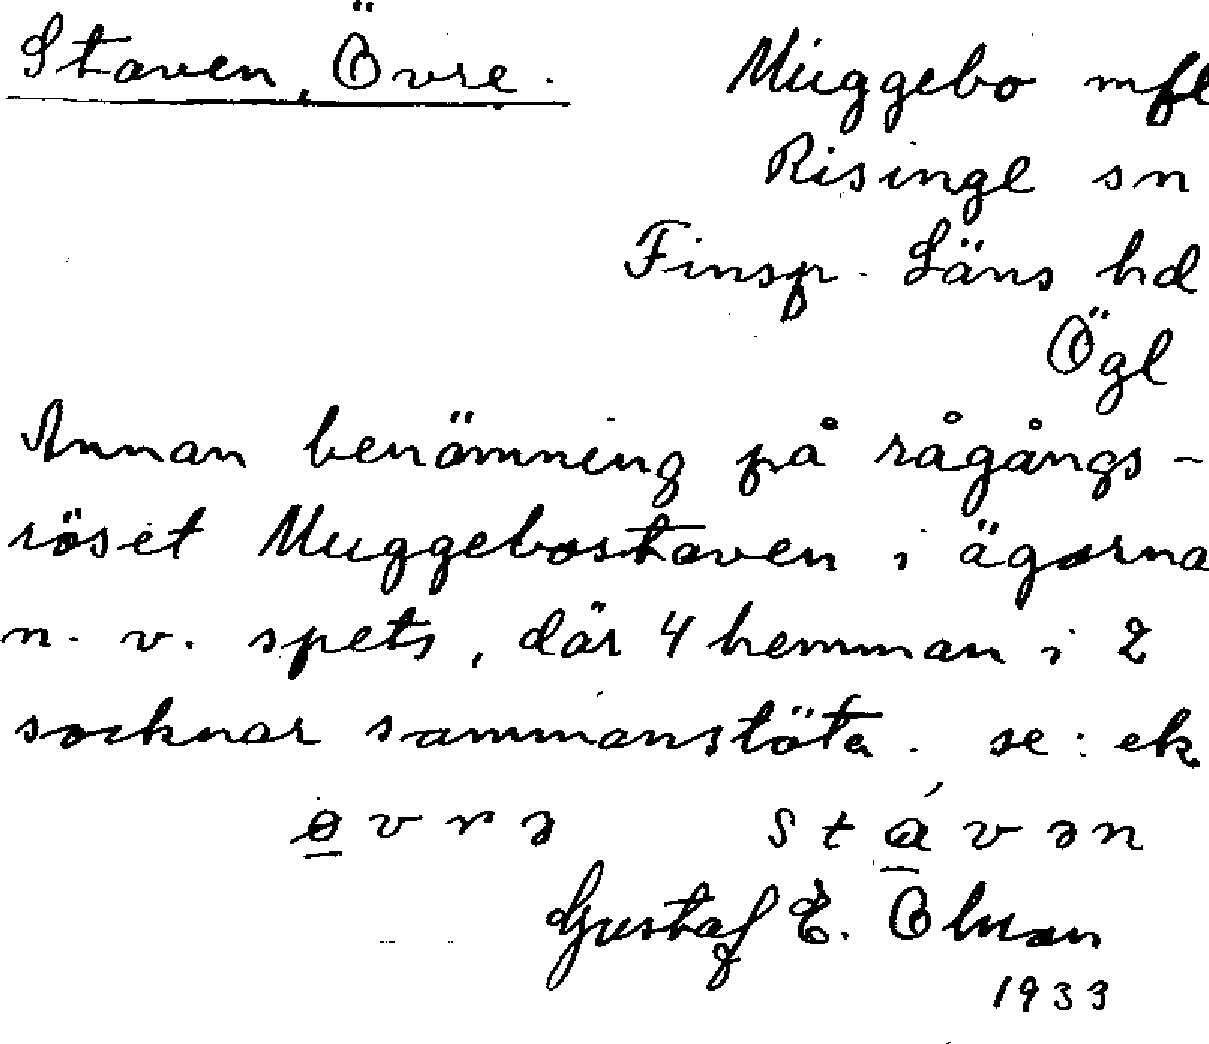 Staven, Övre. Muggebo mfl
Risinge sn
Finsp. Läns hd
Ögl
Annan benämning på rågångs-
röset Muggebostaven i ägorna
n. v. spets, där 4 hemman i 2
socknar sammanstöta. se: ek
øvrə stávən
Gustaf E. Olman
1933